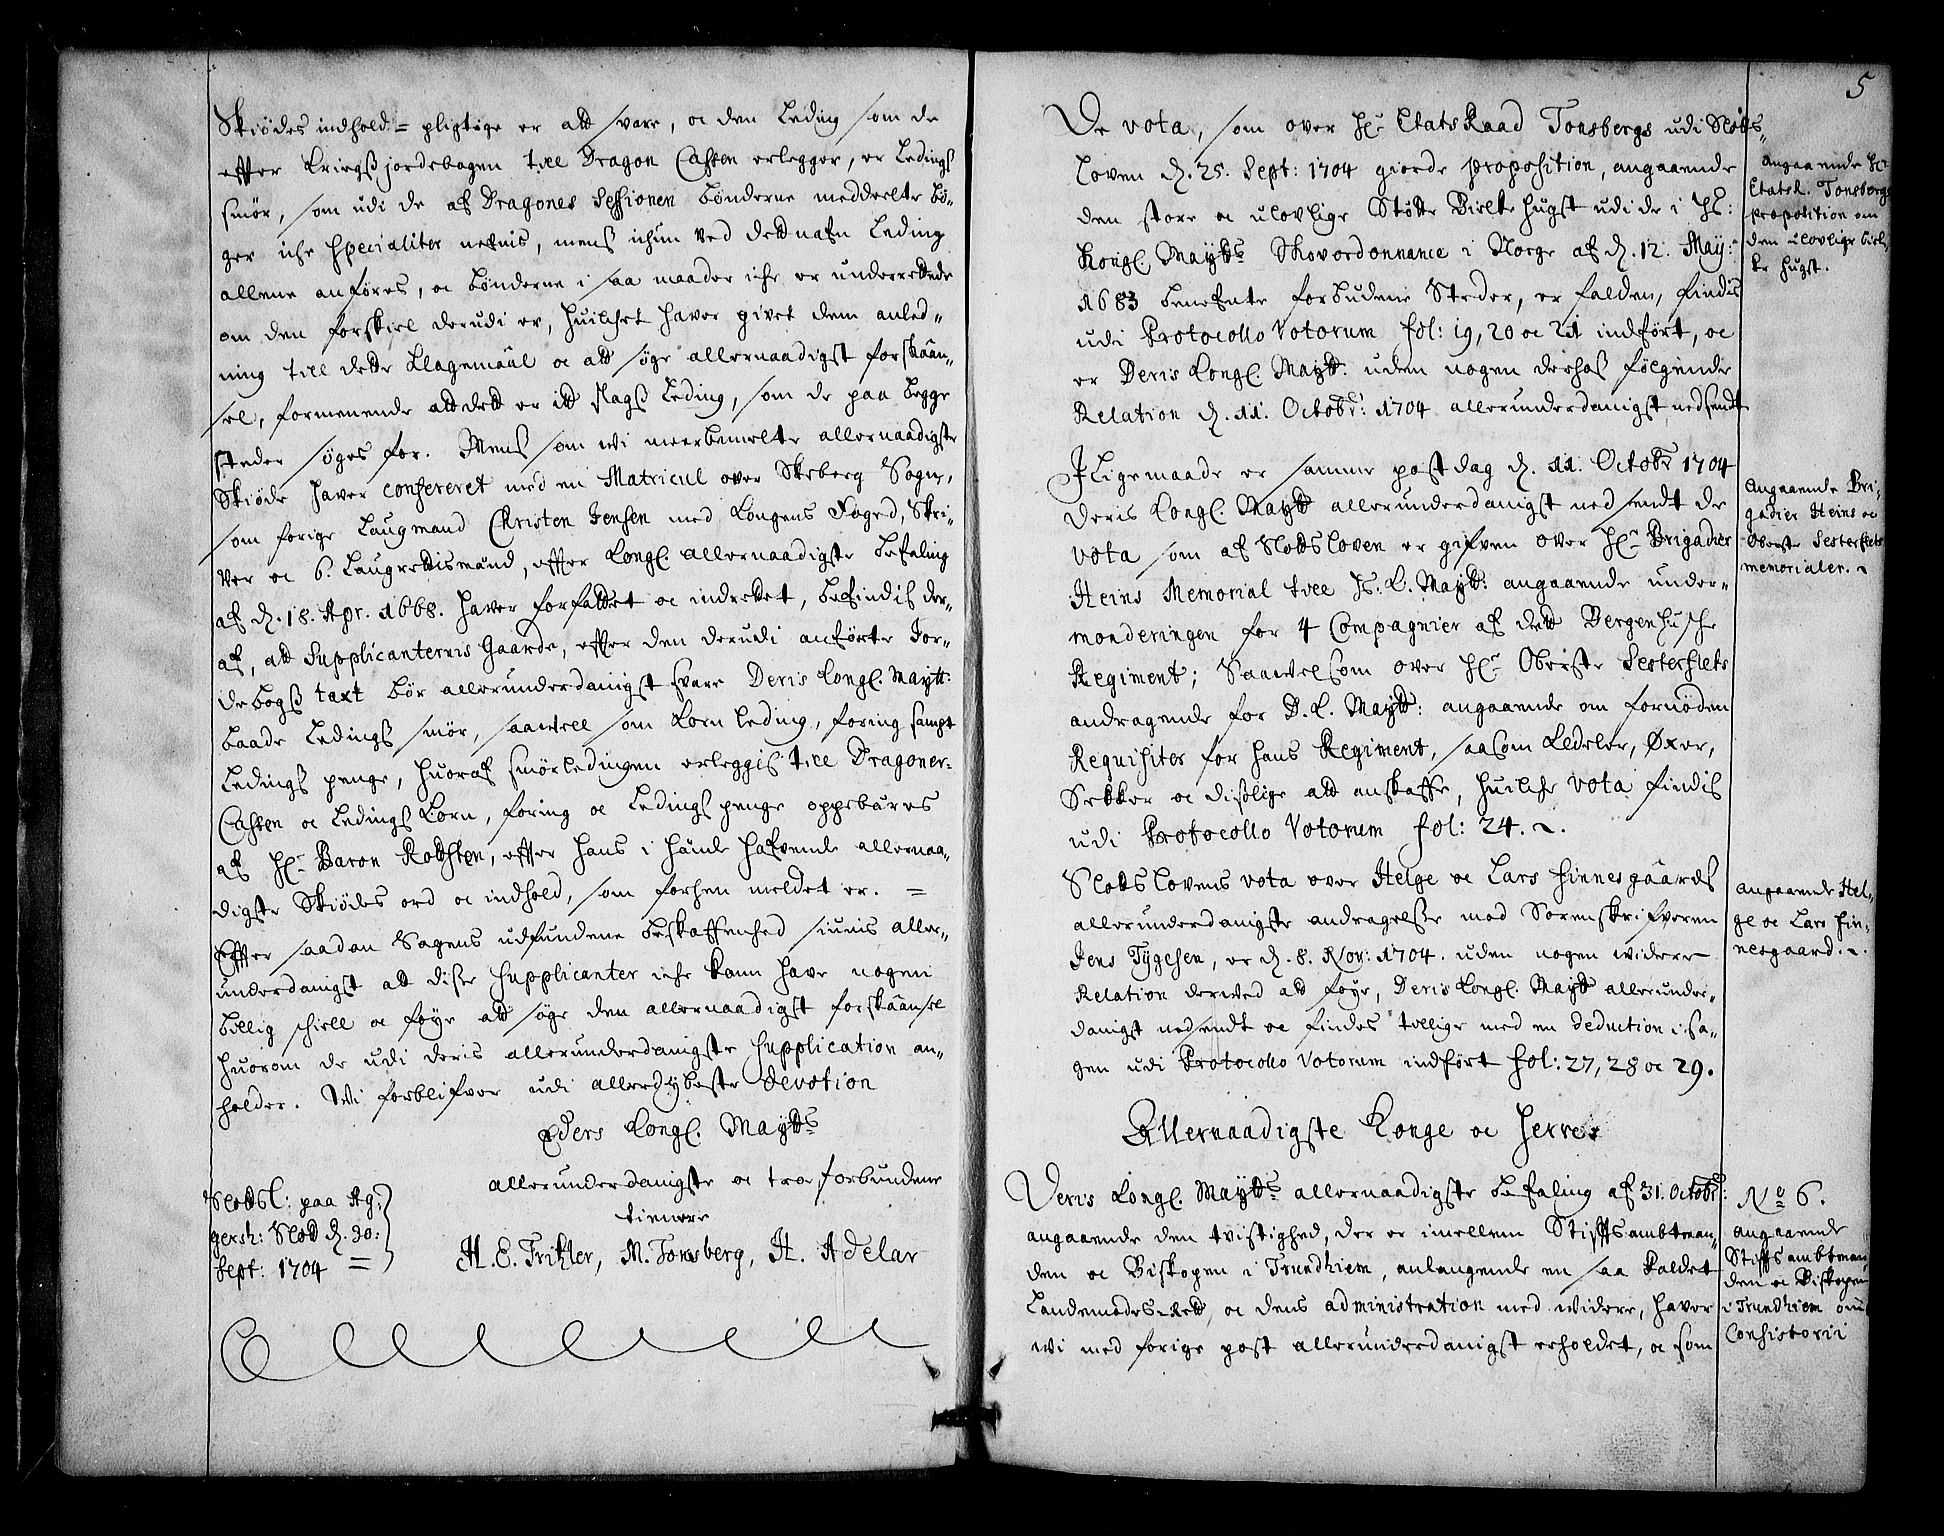 Skiødes indhold = pligtige er att svare, oc den Leding som de
effter Krigsjordebogen till Dragon Cassen erlegger, er Ledings
smør, som udi de af Dragones Sessionen bønderne meddeelte bø-
ger iche specialiter nefnis, mens ichun ved dett nafn Leding
allene anføres, oc bønderne i saa maader iche er underrettede
om den forskiel derudi er, huilchet haver givet dem anled-
ning till dette Klagemaal oc att søge allernaadigst forskaan-
sel, formenende att dett er itt slags Leding, som de paa begge
steder søges for. Mens som wi meerbemelte allernaadigste
Skiøde haver confereret med en Matricul over Skeberg Sogn,
som forige Laugmand Christen Jensen med Kongens Foged, Skri-
ver oc 6. Laugrettismænd, effter Kongl. allernaadigste befaling
af d. 18. Apr. 1668. haver forfattet oc indrettet, befindis der-
af, att Supplicanternis Gaarde, effter den derudi anførte Jor-
debogs taxt bør allerunderdanigst svare Deris Kongl. Maytt:
baade Ledings smør, saawell som Korn leding, foring sampt
Ledings penge, huoraf smørledingen erleggis till Dragoner-
Cassen oc Ledings Korn, foring oc Ledings penge oppebæres
af Hr. Baron Rodsten, effter hans i hænde hafvende allernaa-
digste Skiødes ord oc indhold, som forhen meldet er. =
Effter saadan Sagens udfundene beskaffenhed siunis aller-
underdanigst att disse Supplicanter iche kann have nogen
billig skiell oc føye att søge den allernaadigst forskaansel
huorom de udi deris allerunderdanigste Supplication an-
holder. Wi forblifver udi allerdybeste devotion
Eders Kongl. Maytts
allerunderdanigste oc troe forbundene
tienere
Slodsl: paa Ag-
gersh: Slod d. 30:
Sept: 1704 =
H. E. Tritzler, M. Tonsberg, H. Adelar
5
De vota, som over Hr. Etats Raad Tonsbergs udi Slods-
Loven d. 25. Sept: 1704 giorde proposition, angaaende
den store oc ulovlige Støtte Birke hugst udi de i Hs:
Kongl. Maytts Skovordonnance i Norge af d. 12. May:
1683 benefnte forbudene Steder, er falden, findis
udi Protocollo Votorum fol: 19, 20 oc 21 indført, oc
er Deris Kongl. Maytt: uden nogen derhos følgende
Relation d. 11. Octobr: 1704 allerunderdanigst nedsendt
angaaende Hr
Etatsr. Tonsbergs
proposition om
den ulovlige bir-
ke hugst.
I Ligemaade er samme post dag d. 11. Octobr 1704
Deris Kongl. Maytt allerunderdanigst ned sendt de
vota som af Slodsloven er gifven over Hr. Brigadier
Heins Memorial till Hs: K. Maytt: angaaende under-
monderingen for 4 Compagnier af dett Bergenhusche
Regiment; Saawelsom over Hr. Oberste Sesterflets
andragende for D. K. Maytt: angaaende om fornøden
Requisiter for hans Regiment, saasom Kedeler, Øxer,
Sekker oc dislige att anskaffe, huilche vota findis
udi Protocollo Votorum fol: 24.
Angaaende Bri-
gadier Heins oc
Oberste Sesterflets
memorialer.
Slodslovens vota over Helge oc Lars Finnesgaards
allerunderdanigste andragelse mod Sorenskrifveren
Jens Tygesen, er d. 8. Nov: 1704. uden nogen widere
Relation derved att føye, Deris Kongl. Maytt allerunder-
danigst nedsendt oc findes tillige med en deduction i sa-
gen udi Protocollo Votorum indført fol: 27, 28 oc 29.
angaaende Hel-
ge oc Lars Fin-
nesgaard.
Allernaadigste Konge oc Herre
Deris Kongl. Maytts allernaadigste befaling af 31. Octobr:
angaaende den tvistighed, der er imellem Stiffts ambtman-
den oc Biskopen i Trundhiem, anlangende en saa kaldet
Landemodes rett, oc dens administration med widere, haver
wi med forige post allerunderdanigst erholdet, oc som
No 6.
angaaende
Stiffts ambtman-
den oc Biskopen
i Trundhiem om
Consistorii